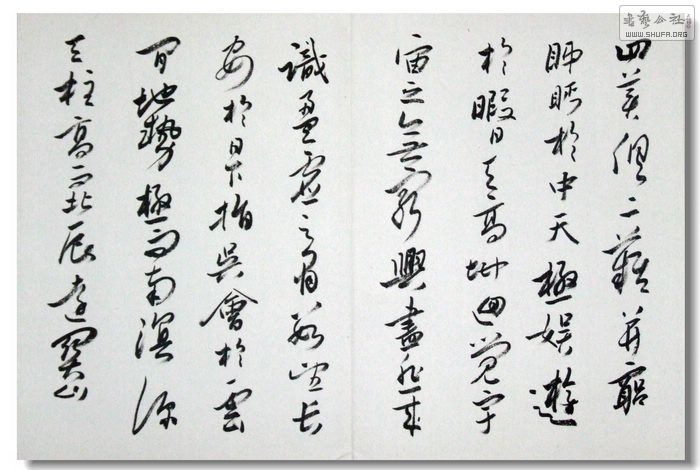 書藝公社
WWW.SHUFA.ORG
四美俱二難并窮
睇眄於中天極娱遊
於暇日天高地迥覺宇
宙之無窮興盡悲來
識盈虛之有數望長
安於日下指吳會於雲
間地勢極而南溟深
天柱高而北辰遠關山